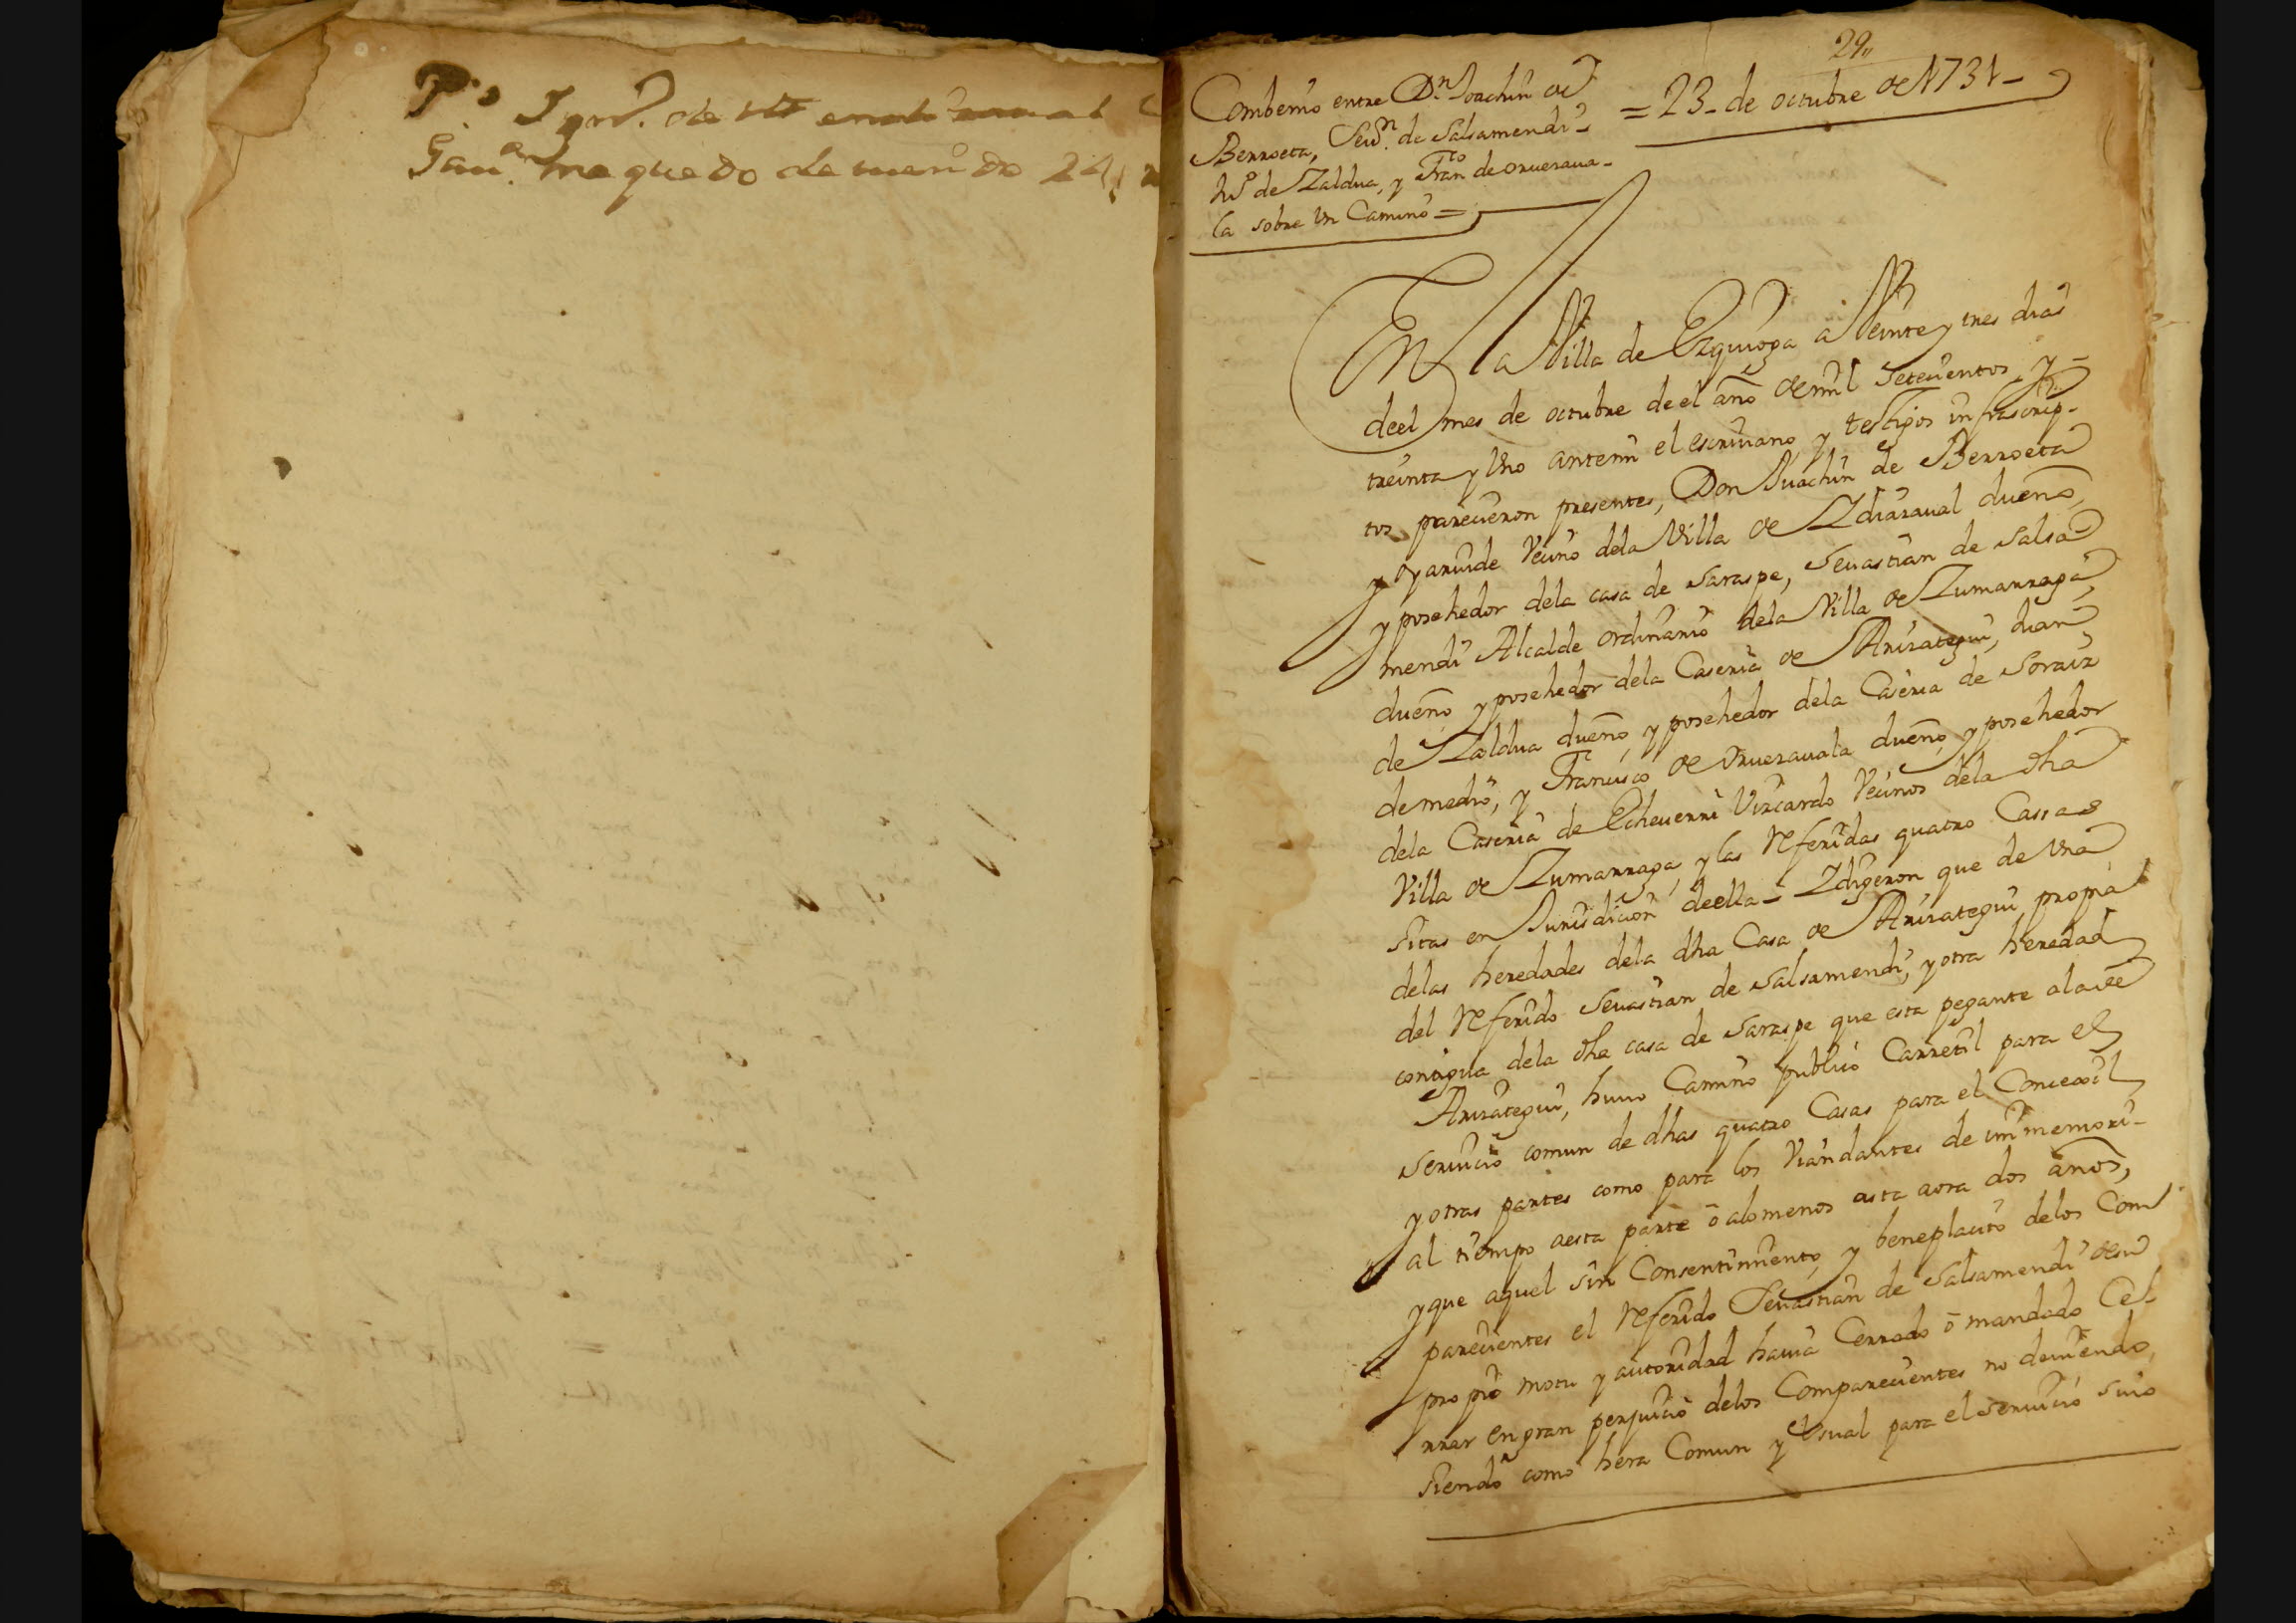 me quedo deviendo 24
29
Combenio entre Dn. Joachin de
= 23 de octubre de 1731 –
Berroeta, Sevn. de Salsamendi –
de Zaldua, y Franco de oruesaua-
la sobre Vn Camino =
En la Villa de Ezquioga a Veinte y tres dias
deel mes de octubre deel año de mil Setecientos, y –
treinta y Vno antemi el escriuano, y testigos infrascrip-
tos parecieron presentes, Don Juachin de Berroeta
y oyaruide Vecino dela Villa de Zdiazaual dueño,
y posehedor dela casa de Saraspe, Seuastian de Salsa
mendi Alcalde ordinario dela Villa de Zumarraga,
dueño y posehedor dela Caseria de Arizategui, dian
de Zaldua dueño y posehedor dela Caseria de Soraiz
demedio, y Francisco de oruesauala dueño y posehedor
dela Caseria de Echeuerri Vizcardo Vecinos dela dha
Villa de Zumarraga, y las Referidas quatro Cassas
sitas en Jurisdicion deella – Zdigeron que de Vna
delas heredades dela dha Casa de Arizategui propia
del Referido Seuastian de Salsamendi, y otra heredad
contigua dela dha casa de Saraspe que esta pegante ala de
Arizategui, huuo Camino publico Carretil para el
seruicio comun de dhas quatro Casas para el Concexil
y otras partes como para los Viandantes de immemori-
al tiempo aesta parte ō alomenos asta aora dos años,
y que aquel sin Consentimiento, y beneplacito delos Com
parecientes el Referido Seuastian de Salsamendi desu
propio motu y autoridad hauia Cerrado ō mandado Ce-
rrar en gran perjuicio delos Comparecientes no deuiendo,
siendo como hera Comun y Vsual para el seruicio suio